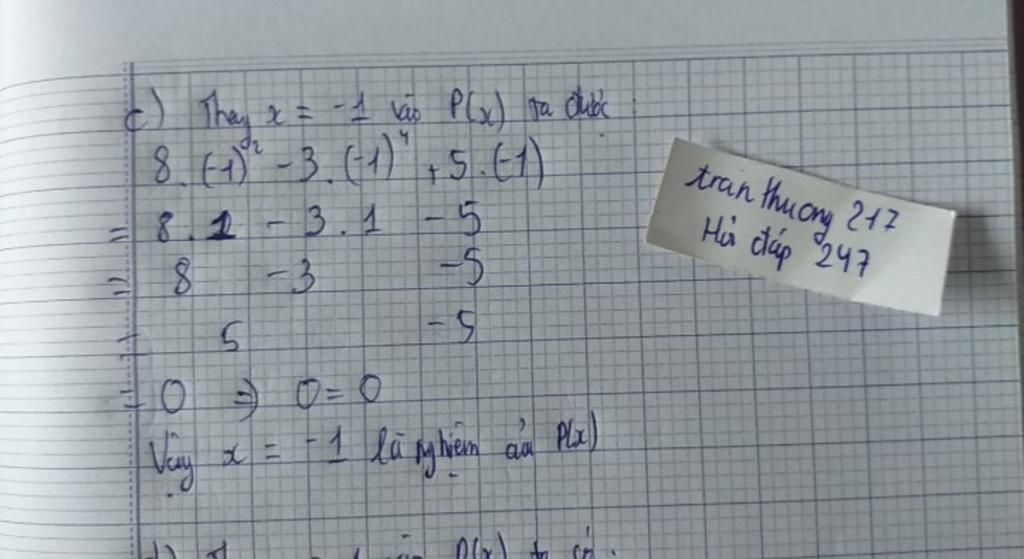 c) Thay x = -1 vào P(x) ta được:
8.(-1)² - 3.(-1)⁴ + 5.(-1)
= 8.1 - 3.1 - 5
= 8 - 3 - 5
= 5 - 5
= 0 ⇒ 0 = 0
Vậy x = -1 là nghiệm của P(x)
tranthuong 217
Hỏi đáp 247